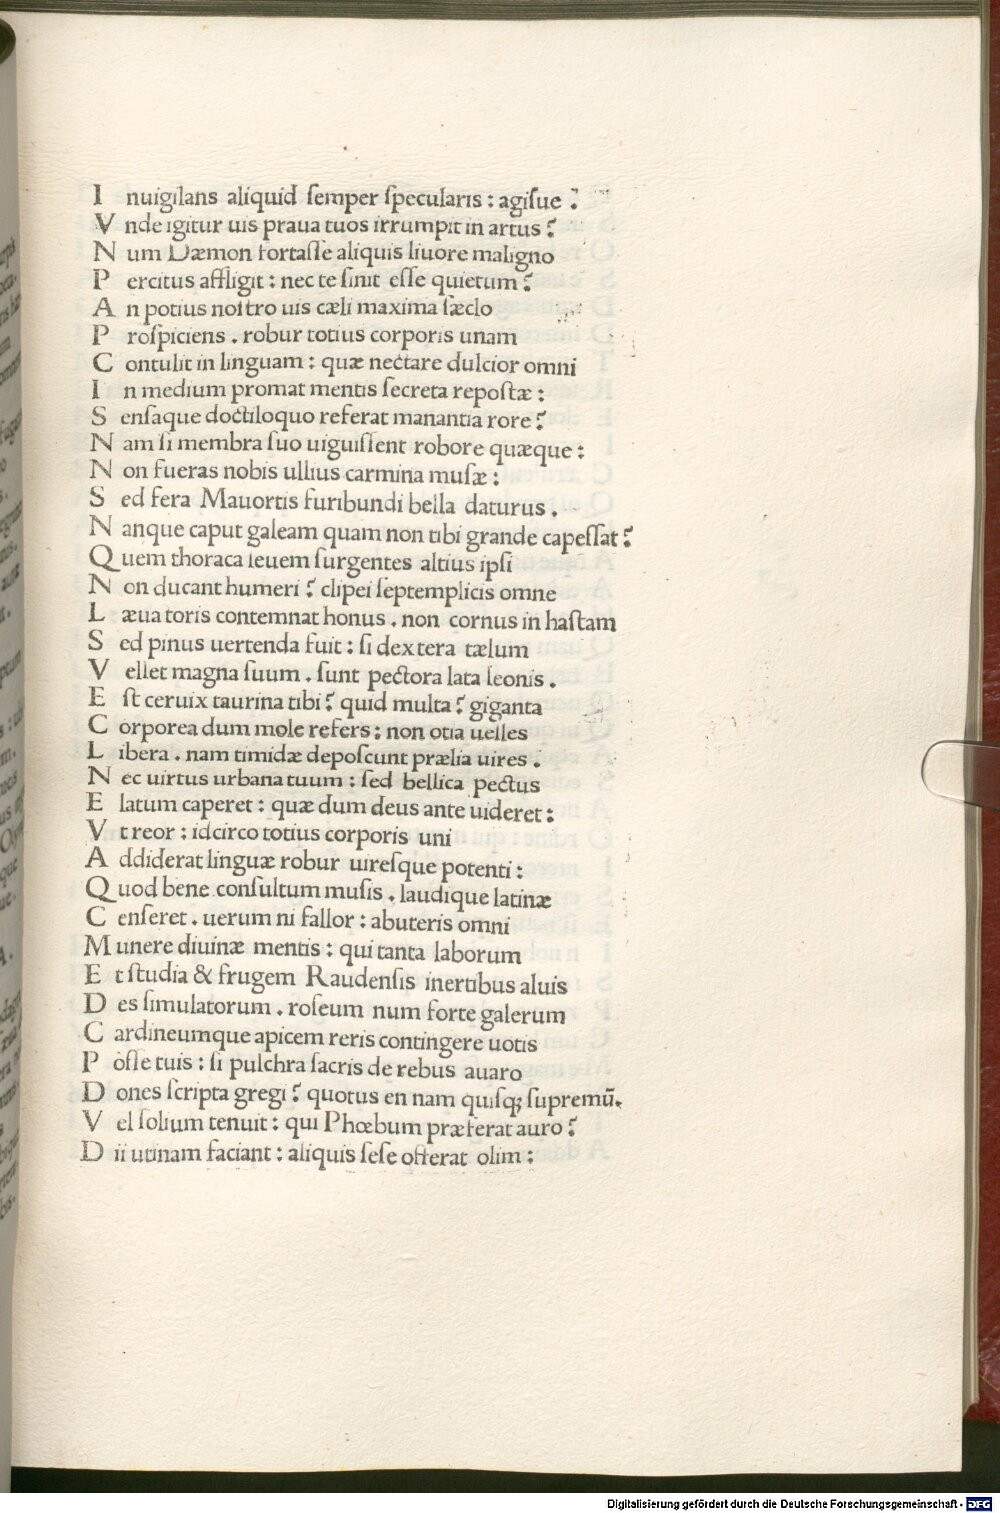 I nuigilans aliquid ſemper ſpecularis : agiſue ?
V nde igitur uis praua tuos irrumpit in artus ?
N um Dæmon fortaſſe aliquis liuore maligno
P ercitus affligit : nec te ſinit eſſe quietum ?
A n potius noſtro uis cæli maxima ſæclo
P roſpiciens . robur totius corporis unam
C ontulit in linguam : quæ nectare dulcior omni
I n medium promat mentis ſecreta repoſtæ :
S enſaque doctiloquo referat manantia rore ?
N am ſi membra ſuo uiguiſſent robore quæque :
N on fueras nobis ullius carmina muſæ :
S ed fera Mauortis furibundi bella daturus .
N anque caput galeam quam non tibi grande capeſſat ?
Q uem thoraca leuem ſurgentes altius ipſi
N on ducant humeri ? clipei ſeptemplicis omne
L æua toris contemnat honus . non cornus in haſtam
S ed pinus uertenda fuit : ſi dextera tælum
V ellet magna ſuum . ſunt pectora lata leonis .
E ſt ceruix taurina tibi ? quid multa ? giganta
C orporea dum mole refers : non otia uelles
L ibera . nam timidæ depoſcunt prælia uires .
N ec uirtus urbana tuum : ſed bellica pectus
E latum caperet : quæ dum deus ante uideret :
V t reor : idcirco totius corporis uni
A ddiderat linguæ robur uireſque potenti :
Q uod bene conſultum muſis . laudique latinæ
C enſeret . uerum ni fallor : abuteris omni
M unere diuinæ mentis : qui tanta laborum
E t ſtudia & frugem Raudenſis inertibus aluis
D es ſimulatorum . roſeum num forte galerum
C ardineumque apicem reris contingere uotis
P oſſe tuis : ſi pulchra ſacris de rebus auaro
D ones ſcripta gregi ? quotus en nam quiſqꝫ ſupremũ .
V el ſolium tenuit : qui Phœbum præferat auro ?
D ii utinam faciant : aliquis ſeſe offerat olim :
Digitalisierung gefördert durch die Deutsche Forschungsgemeinschaft - DFG